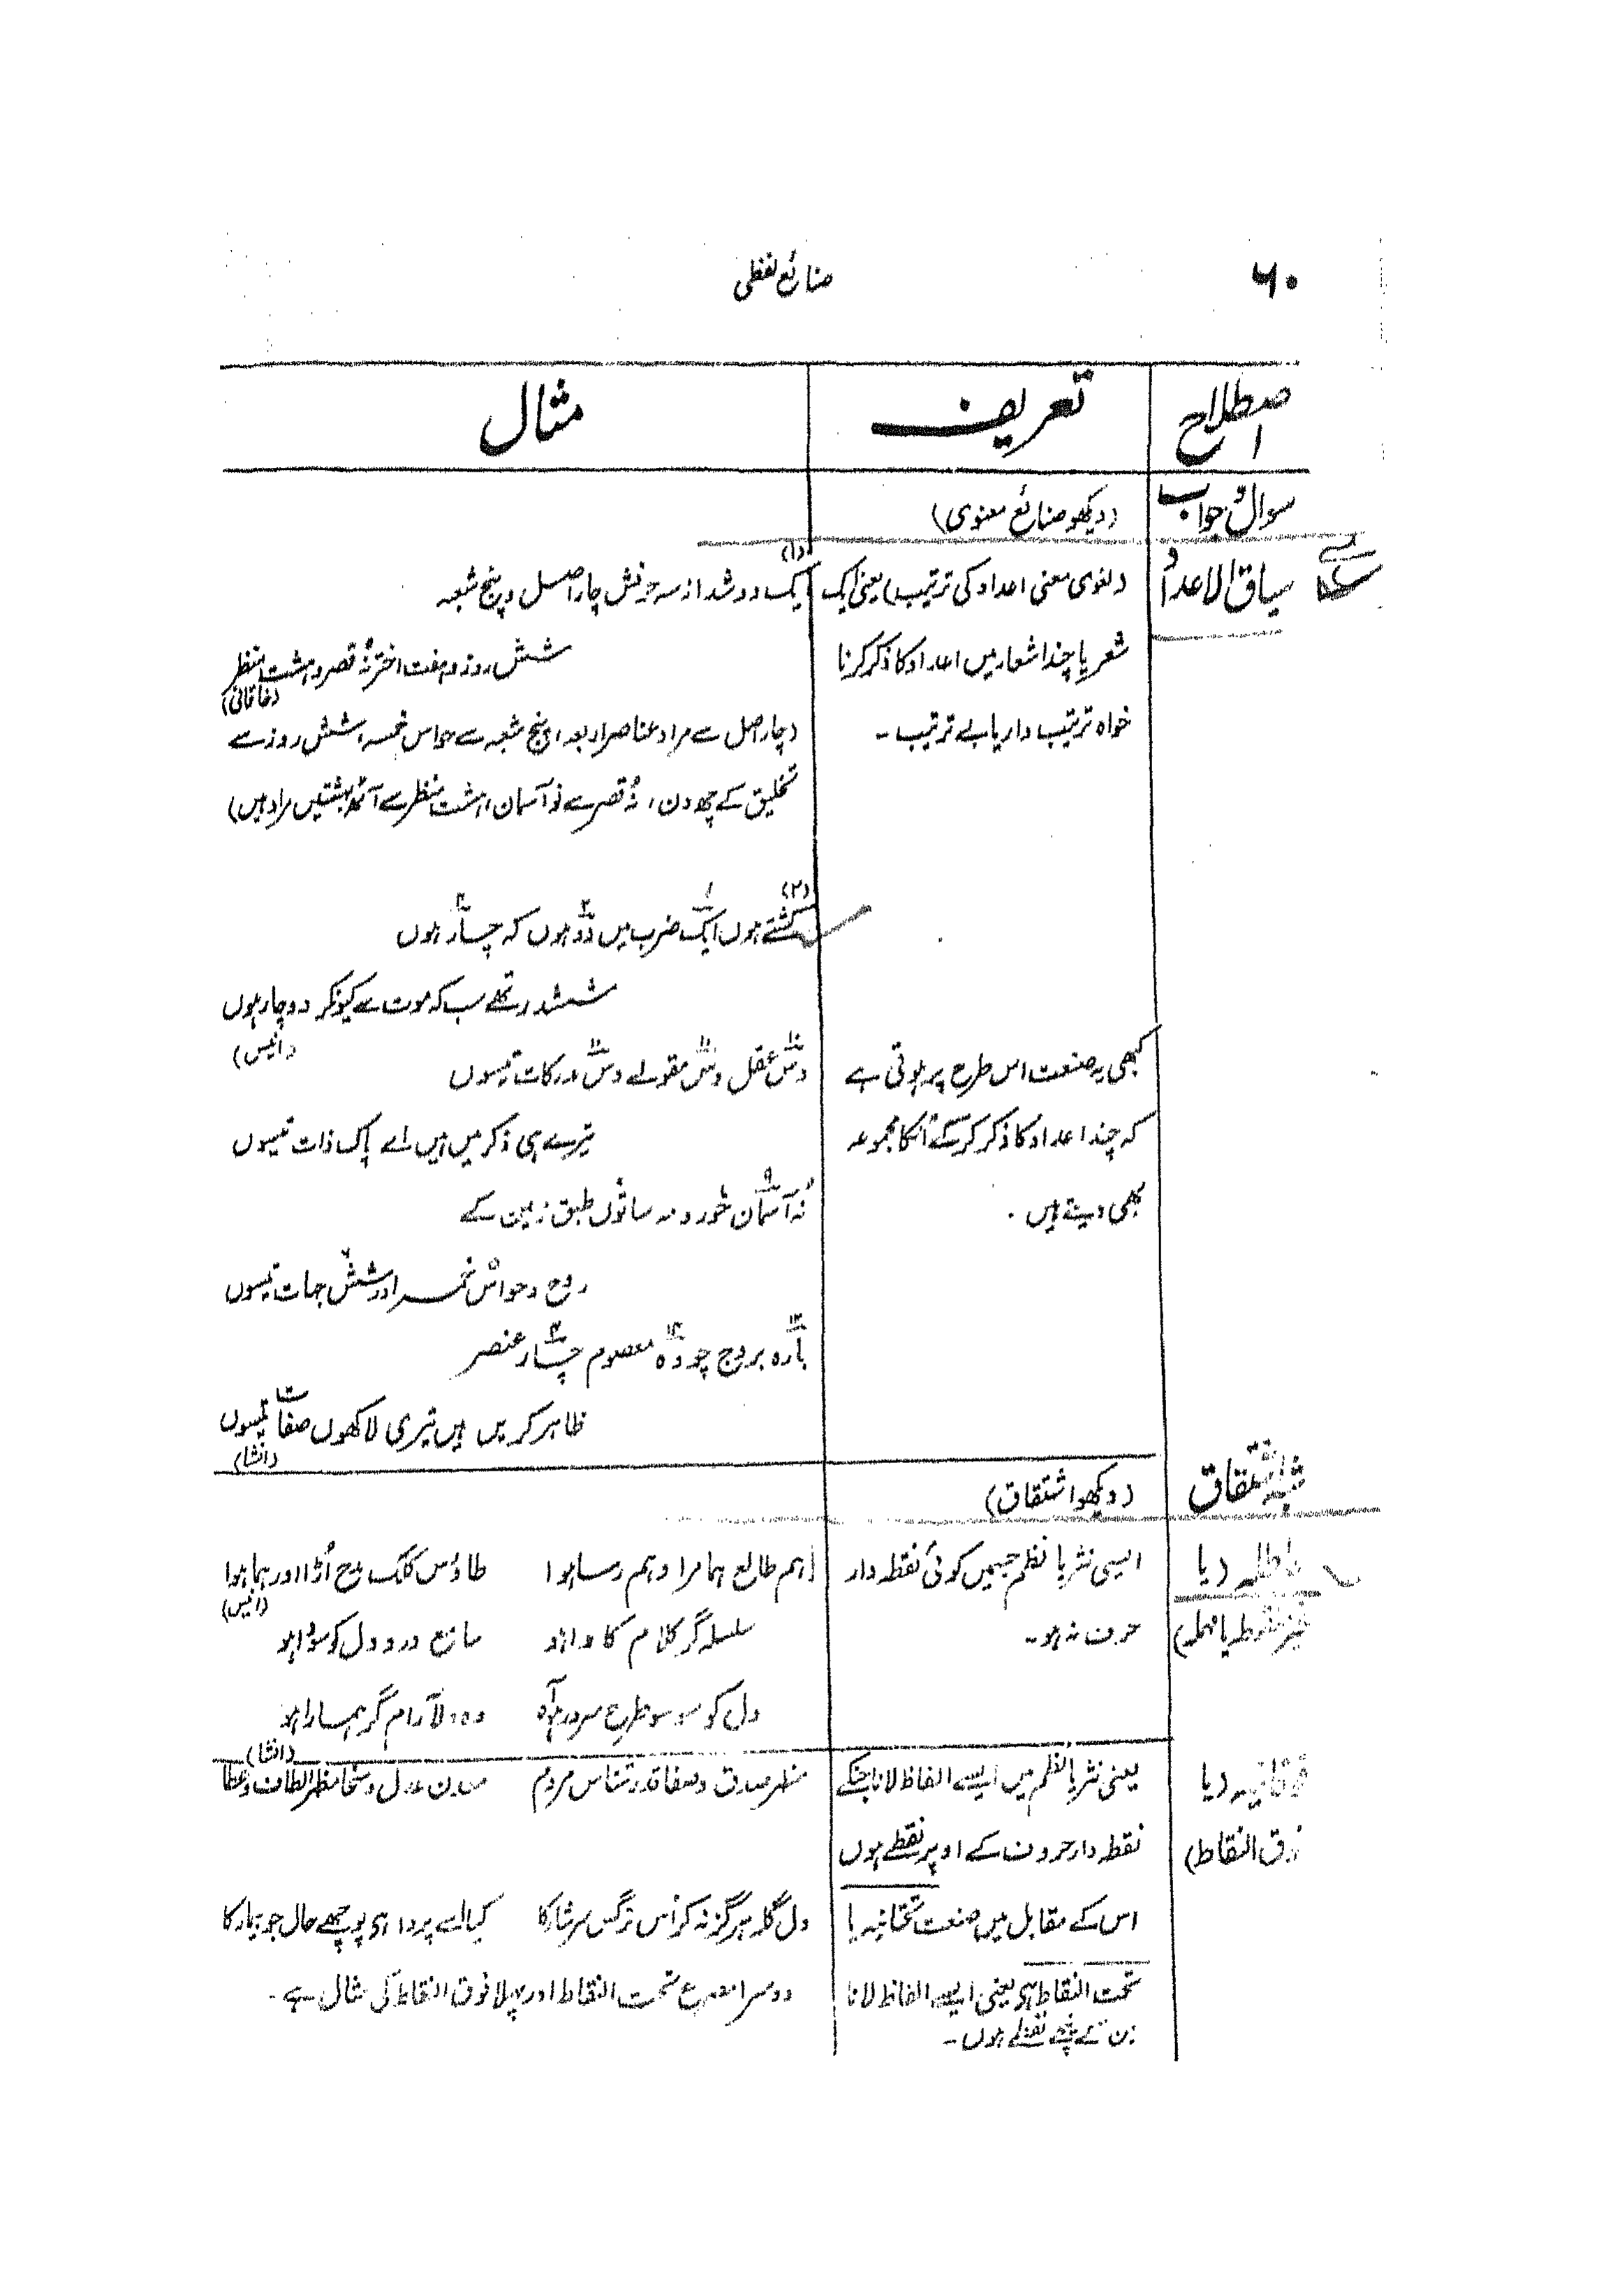 ۶۰
صنائع لفظی
اصطلاح
تعریف
مثال
سوال و جواب
(دیکھو صنائع معنوی)
سیاق الاعداد
(لغوی معنی اعداد کی ترتیب) یعنی ایک
شعر یا چند اشعار میں اعداد کا ذکر کرنا
خواہ ترتیب وار یا بے ترتیب ۔
(۱)
یک دو شد از سہ حرفش چار اصل و پنج شعبہ
شش روز و ہفت اختر نُہ قصر و ہشت منظر
(خاقانی)
(چار اصل سے مراد عناصر اربعہ، پنج شعبہ سے حواس خمسہ، شش روز سے
تخلیق کے چھ دن، نُہ قصر سے نو آسمان، ہشت منظر سے آٹھ بہشتیں مراد ہیں)
(۲)
کشتے ہوں ایک ضرب میں دو ہوں کہ چار ہوں
ششدر تھے سب کہ موت سے کیونکر دوچار ہوں
(انیس)
کبھی یہ صنعت اس طرح پر ہوتی ہے
کہ چند اعداد کا ذکر کرکے اُنکا مجموعہ
بھی دیتے ہیں ۔
دس عقل دس مقولے دس مدرکات تیسوں
تیرے ہی ذکر میں ہیں اے پاک ذات تیسوں
نہ آسمان خور و مہ ساتوں طبق زمین کے
روح و حواس خمسہ اور شش جہات تیسوں
بارہ بروج چودہ معصوم چار عنصر
ظاہر کریں ہیں تیری لاکھوں صفات تیسوں
(انشا)
شبہ اشتقاق
(دیکھو اشتقاق)
عاطلہ (یا
غیر منقوطہ یا مہملہ)
ایسی نثر یا نظم جسمیں کوئی نقطہ دار
حرف نہ ہو ۔
ہم طالع ہما مرا وہم رسا ہوا
طاؤس کلک مدح اُڑا اور ہما ہوا
(انیس)
سلسلہ گر کلام کا وا ہو
سامع درد دل کو سودا ہو
دل کو سو سو طرح سرور ہو آہ
وہ دلآرام گر ہمارا ہو
(انشا)
فوقانیہ (یا
فوق النقاط)
یعنی نثر یا نظم میں ایسے الفاظ لانا جنکے
نقطہ دار حروف کے اوپر نقطے ہوں
اس کے مقابل میں صنعت تحتانیہ یا
تحت النقاط ہی یعنی ایسے الفاظ لانا
جن کے نیچے نقطے ہوں ۔
صدق وصفا قدر شناس مردم
معدن عدل و سخا مظہر الطاف و عطا
دل گلہ ہرگز نہ کر اُس نرگس سرشار کا
کیا اسے پروا ہی پوچھے حال جو بیمار کا
دوسرا مصرع تحت النقاط اور پہلا فوق النقاط کی مثال ہے ۔